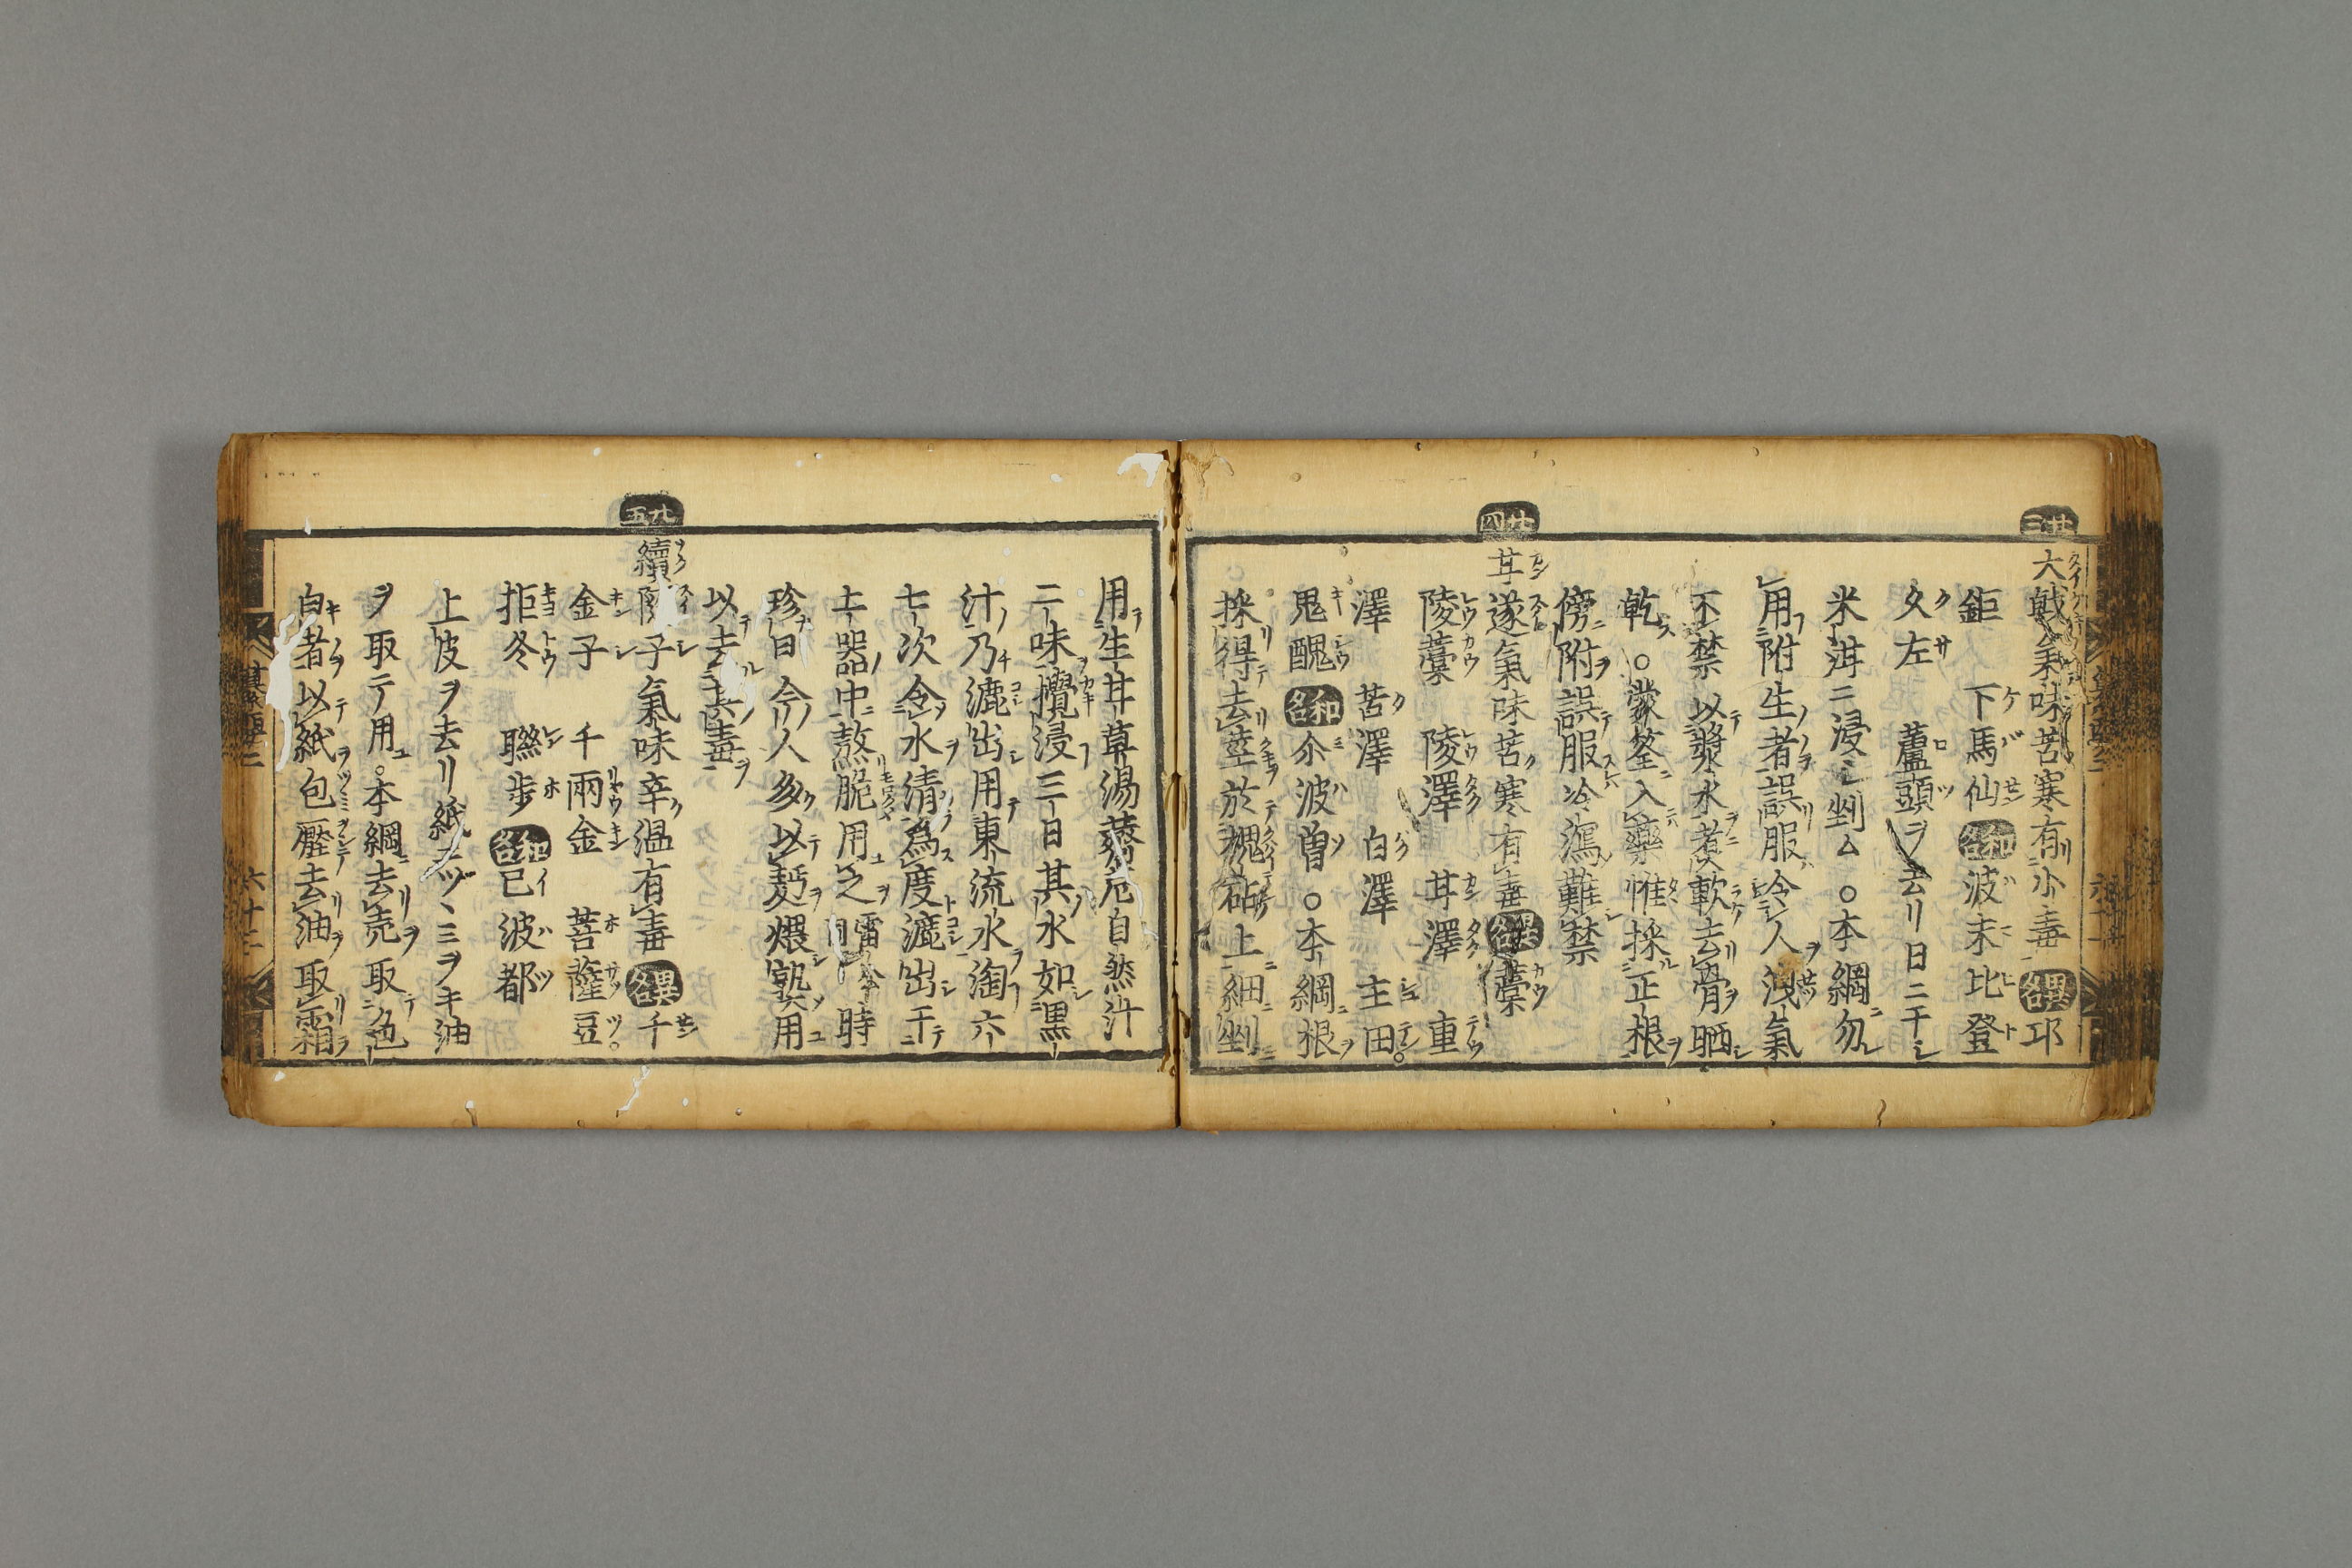 廿三
大戟氣味苦寒有小毒異名卭
鉅 下馬仙和名波末比登
久左 蘆頭ヲ去リ日ニ干シ
米泔ニ浸シ剉ム○本綱勿
用附生者誤服令人洩氣
不禁以漿水煮軟去骨晒
乾○蒙筌入藥惟採正根
傍附誤服冷瀉難禁
廿四
甘遂氣味苦寒有毒異名藁
陵藁 陵澤 甘澤 重
澤 苦澤 白澤 主田
鬼醜和名尒波曽○本綱根
採得去莖於槐砧上細剉
用生甘草湯薺苨自然汁
二味攪浸三日其水如黒
汁乃漉出用東流水淘六
七次令水清爲度漉出干
土器中熬脆用之
珍曰今人多以麪煨熟用
以去其毒
廿五
續隨子氣味辛温有毒異名千
金子 千兩金 菩薩豆
拒冬 聯步和名已波都
上皮ヲ去リ紙ニツヽミヲキ油
ヲ取テ用○本綱去売取色
白者以紙包壓去油取霜
六十三